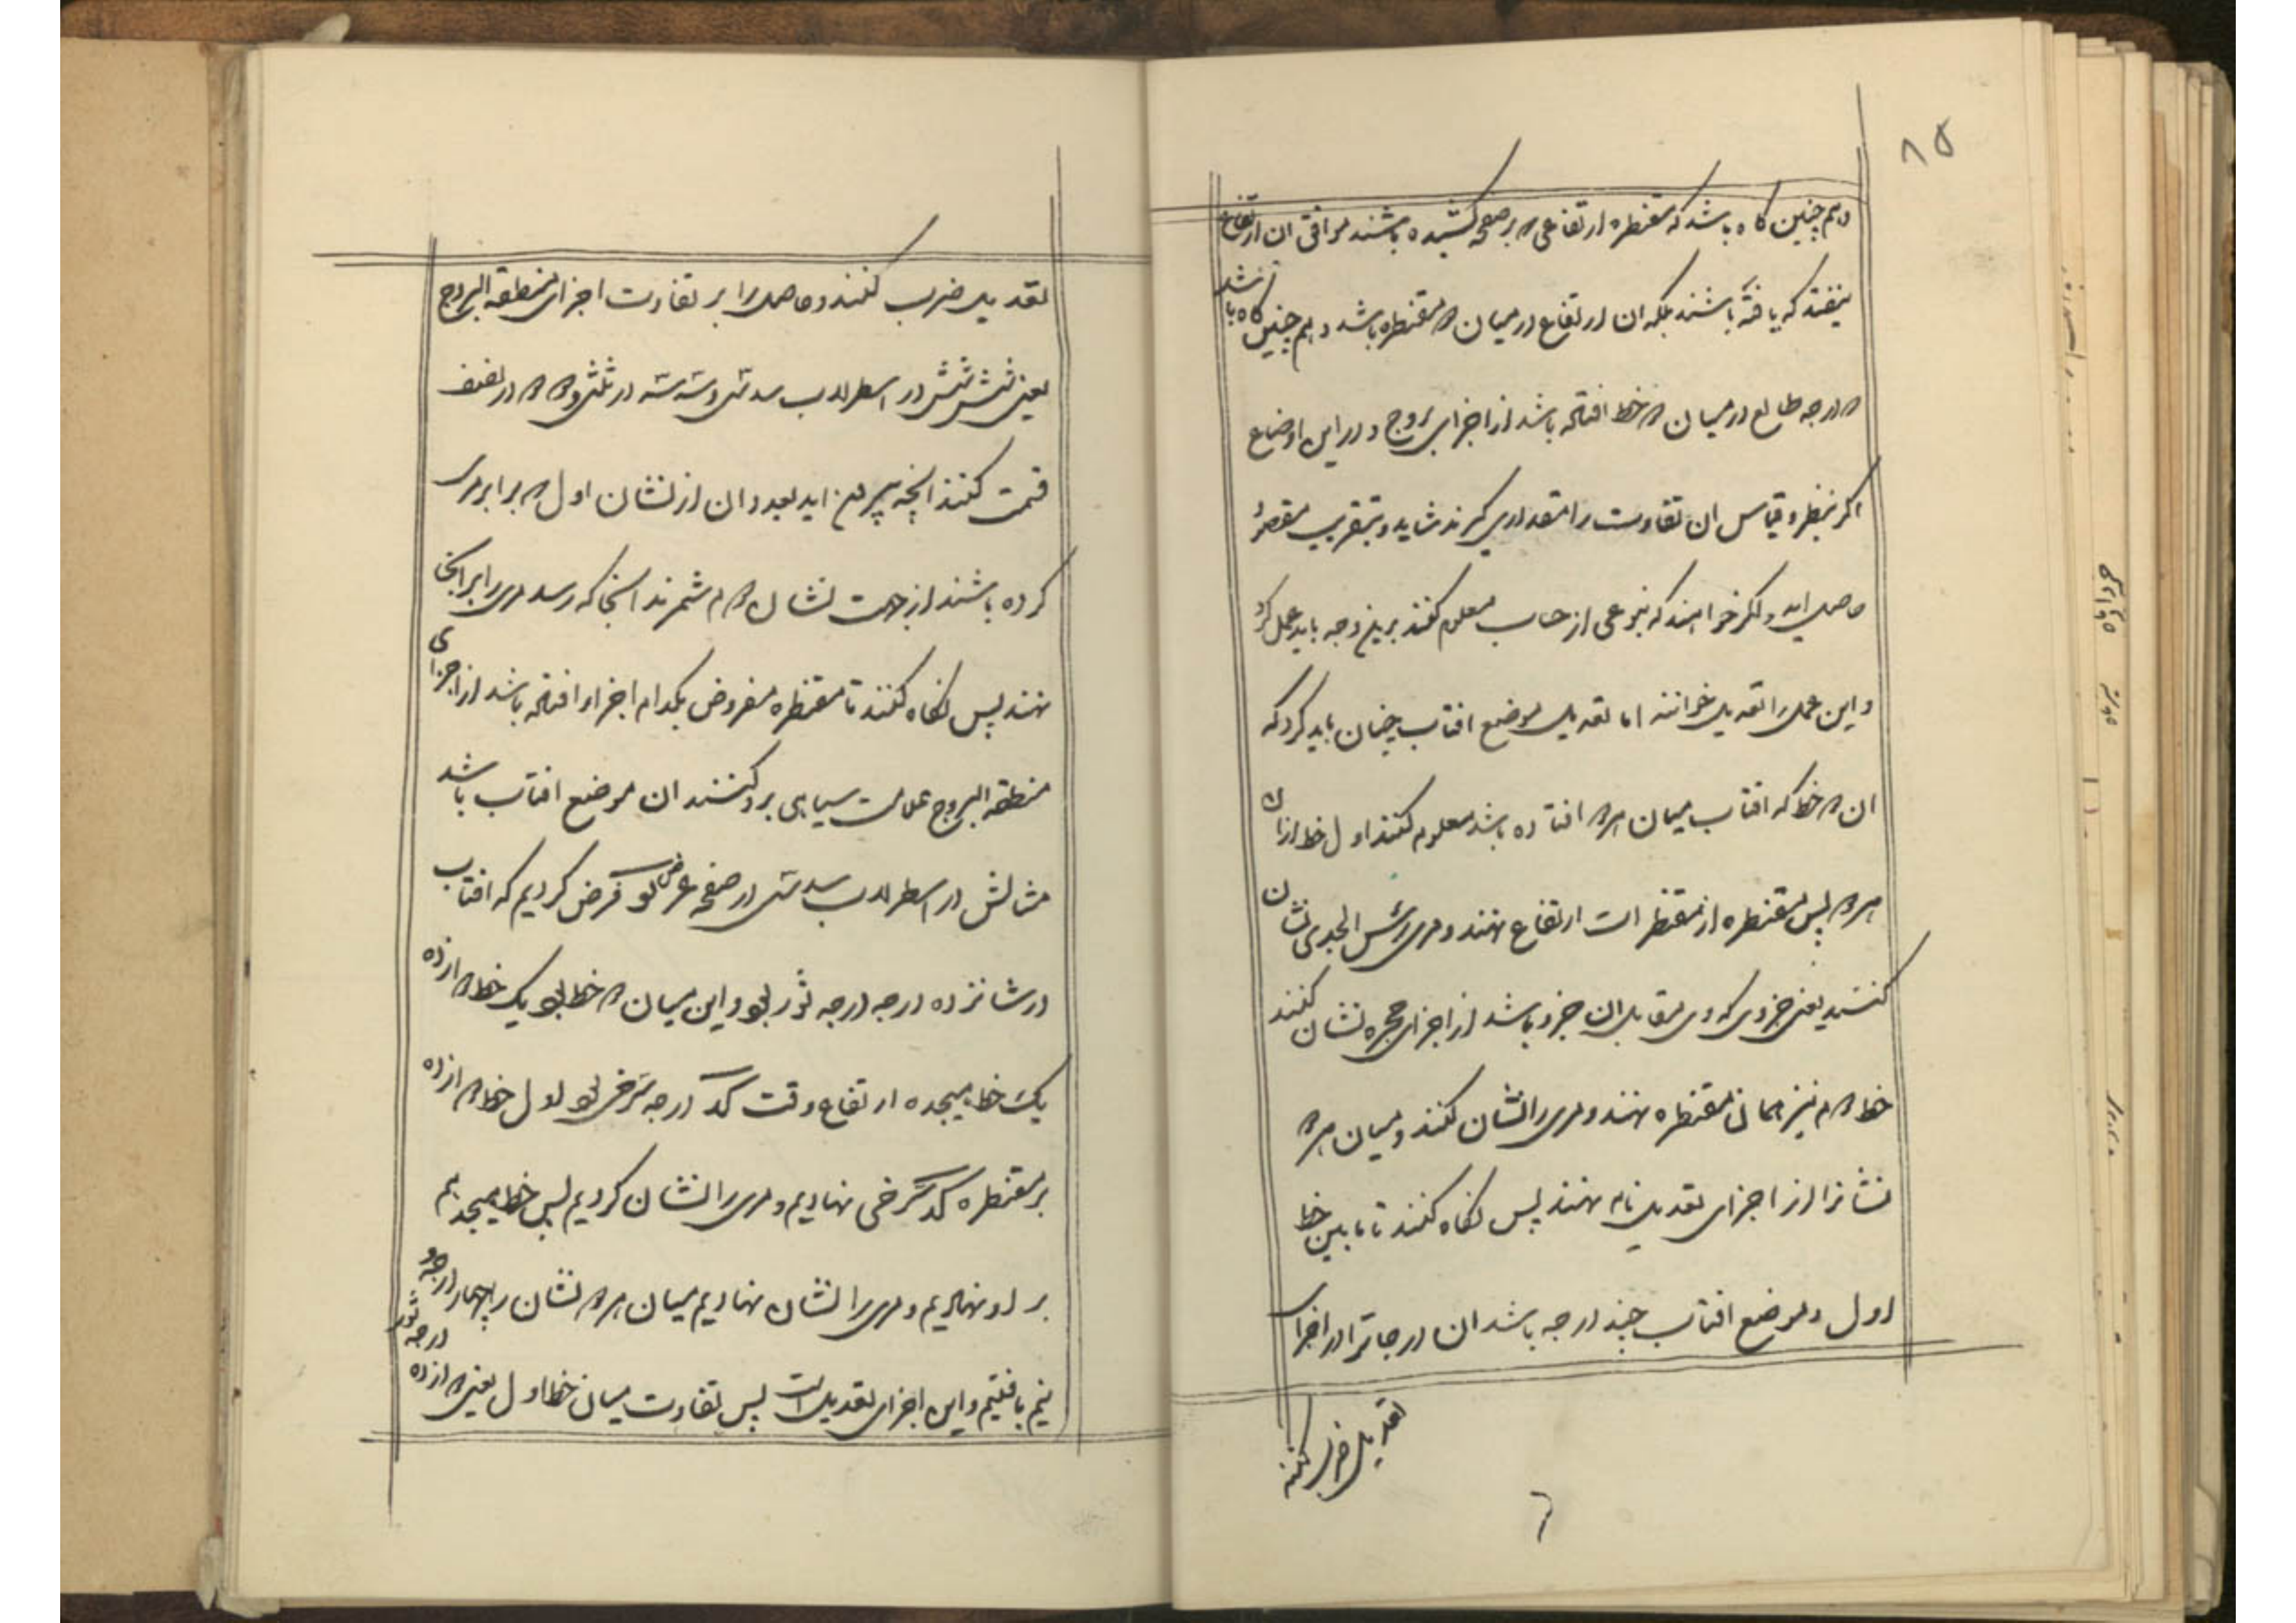 ۸۵
و هم چنین کاه باشد که مقنطره ارتفاعی که بر صفحه کشیده باشند موافق ان ارتفاع
نیفتد که یافته باشند بلکه ان ارتفاع در میان دو مقنطره باشد و هم چنین کاه باشد
که درجه طالع در میان دو خط افتاده باشد از اجزای بروج و در این اوضاع
اکر بنظر و قیاس ان تفاوت را مقداری کیرند شاید و بتقریب مقصود
حاصل اید و اکر خواهند که بنوعی از حساب معلوم کنند برین وجه باید عمل کرد
و این عمل را تعدیل خوانند اما تعدیل موضع افتاب چنان باید کرد که
ان دو خط که افتاب میان هر دو افتاده باشد معلوم کنند اول خط از ان
هر دو پس مقنطره از مقنطرات ارتفاع نهند و مری راس الجدی نشان
کنند یعنی جزوی که مری مقابل ان جزو باشد از اجزای حجره نشان کنند
خط دوم نیز بر همان مقنطره نهند و مری را نشان کنند و میان هر دو
نشان را از اجزای تعدیل نام نهند پس نکاه کنند تا مابین خط
اول و موضع افتاب چند درجه باشد ان درجات را در اجزای
تعدیل ضرب کنند
تعدیل ضرب کنند و حاصل را بر تفاوت اجزای منطقه البروج
یعنی شش شش در اسطرلاب سدسی و سه سه در ثلثی و دو دو در نصفی
قسمت کنند انچه بیرون اید بعدد ان از نشان اول که برابر مری
کرده باشند از جهت نشان دوم شمرند انجا که رسد مری را برابر انجا
نهند پس نکاه کنند تا مقنطره مفروض بکدام اجزا افتاده باشد از اجزای
منطقه البروج علامت سیاهی برو کنند ان موضع افتاب باشد
مثالش در اسطرلاب سدسی در صفحه عرض لو فرض کردیم که افتاب
در شانزده درجه ثور بود و این میان دو خط بود یک خط دوازده
یک خط هیجده ارتفاع وقت درجه شرقی بود اول خط دوازده
بر مقنطره شرقی نهادیم و مری را نشان کردیم پس خط هیجدهم
بر او نهادیم و مری را نشان نهادیم میان هر دو نشان را چهار درجه و
نیم یافتیم و این اجزای تعدیل است پس تفاوت میان خط اول یعنی دوازده درجه ثور